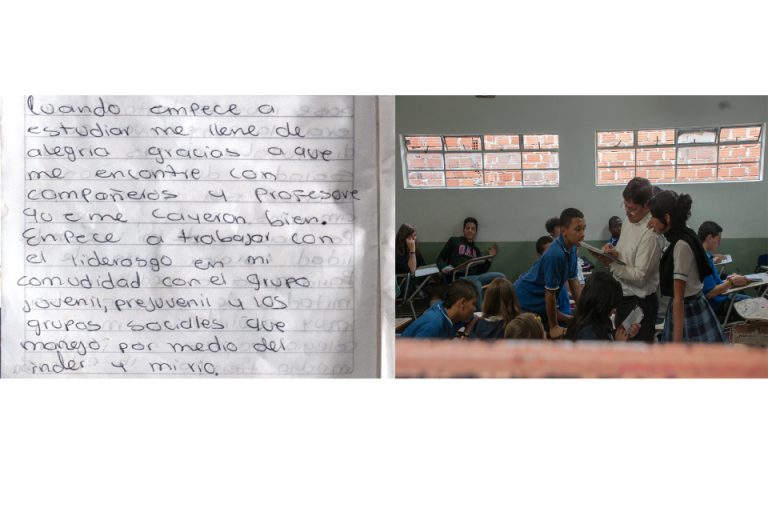 Cuando empece a
estudiar me llene de
alegria gracias a que
me encontre con
compañeros y profesore
que me cayeron bien.
Enpece a trabajar con
el liderasgo en mi
comudidad con el grupo
jovenil, prejuvenil y los
grupos sociales que
manejo por medio del
inder y mi rio.